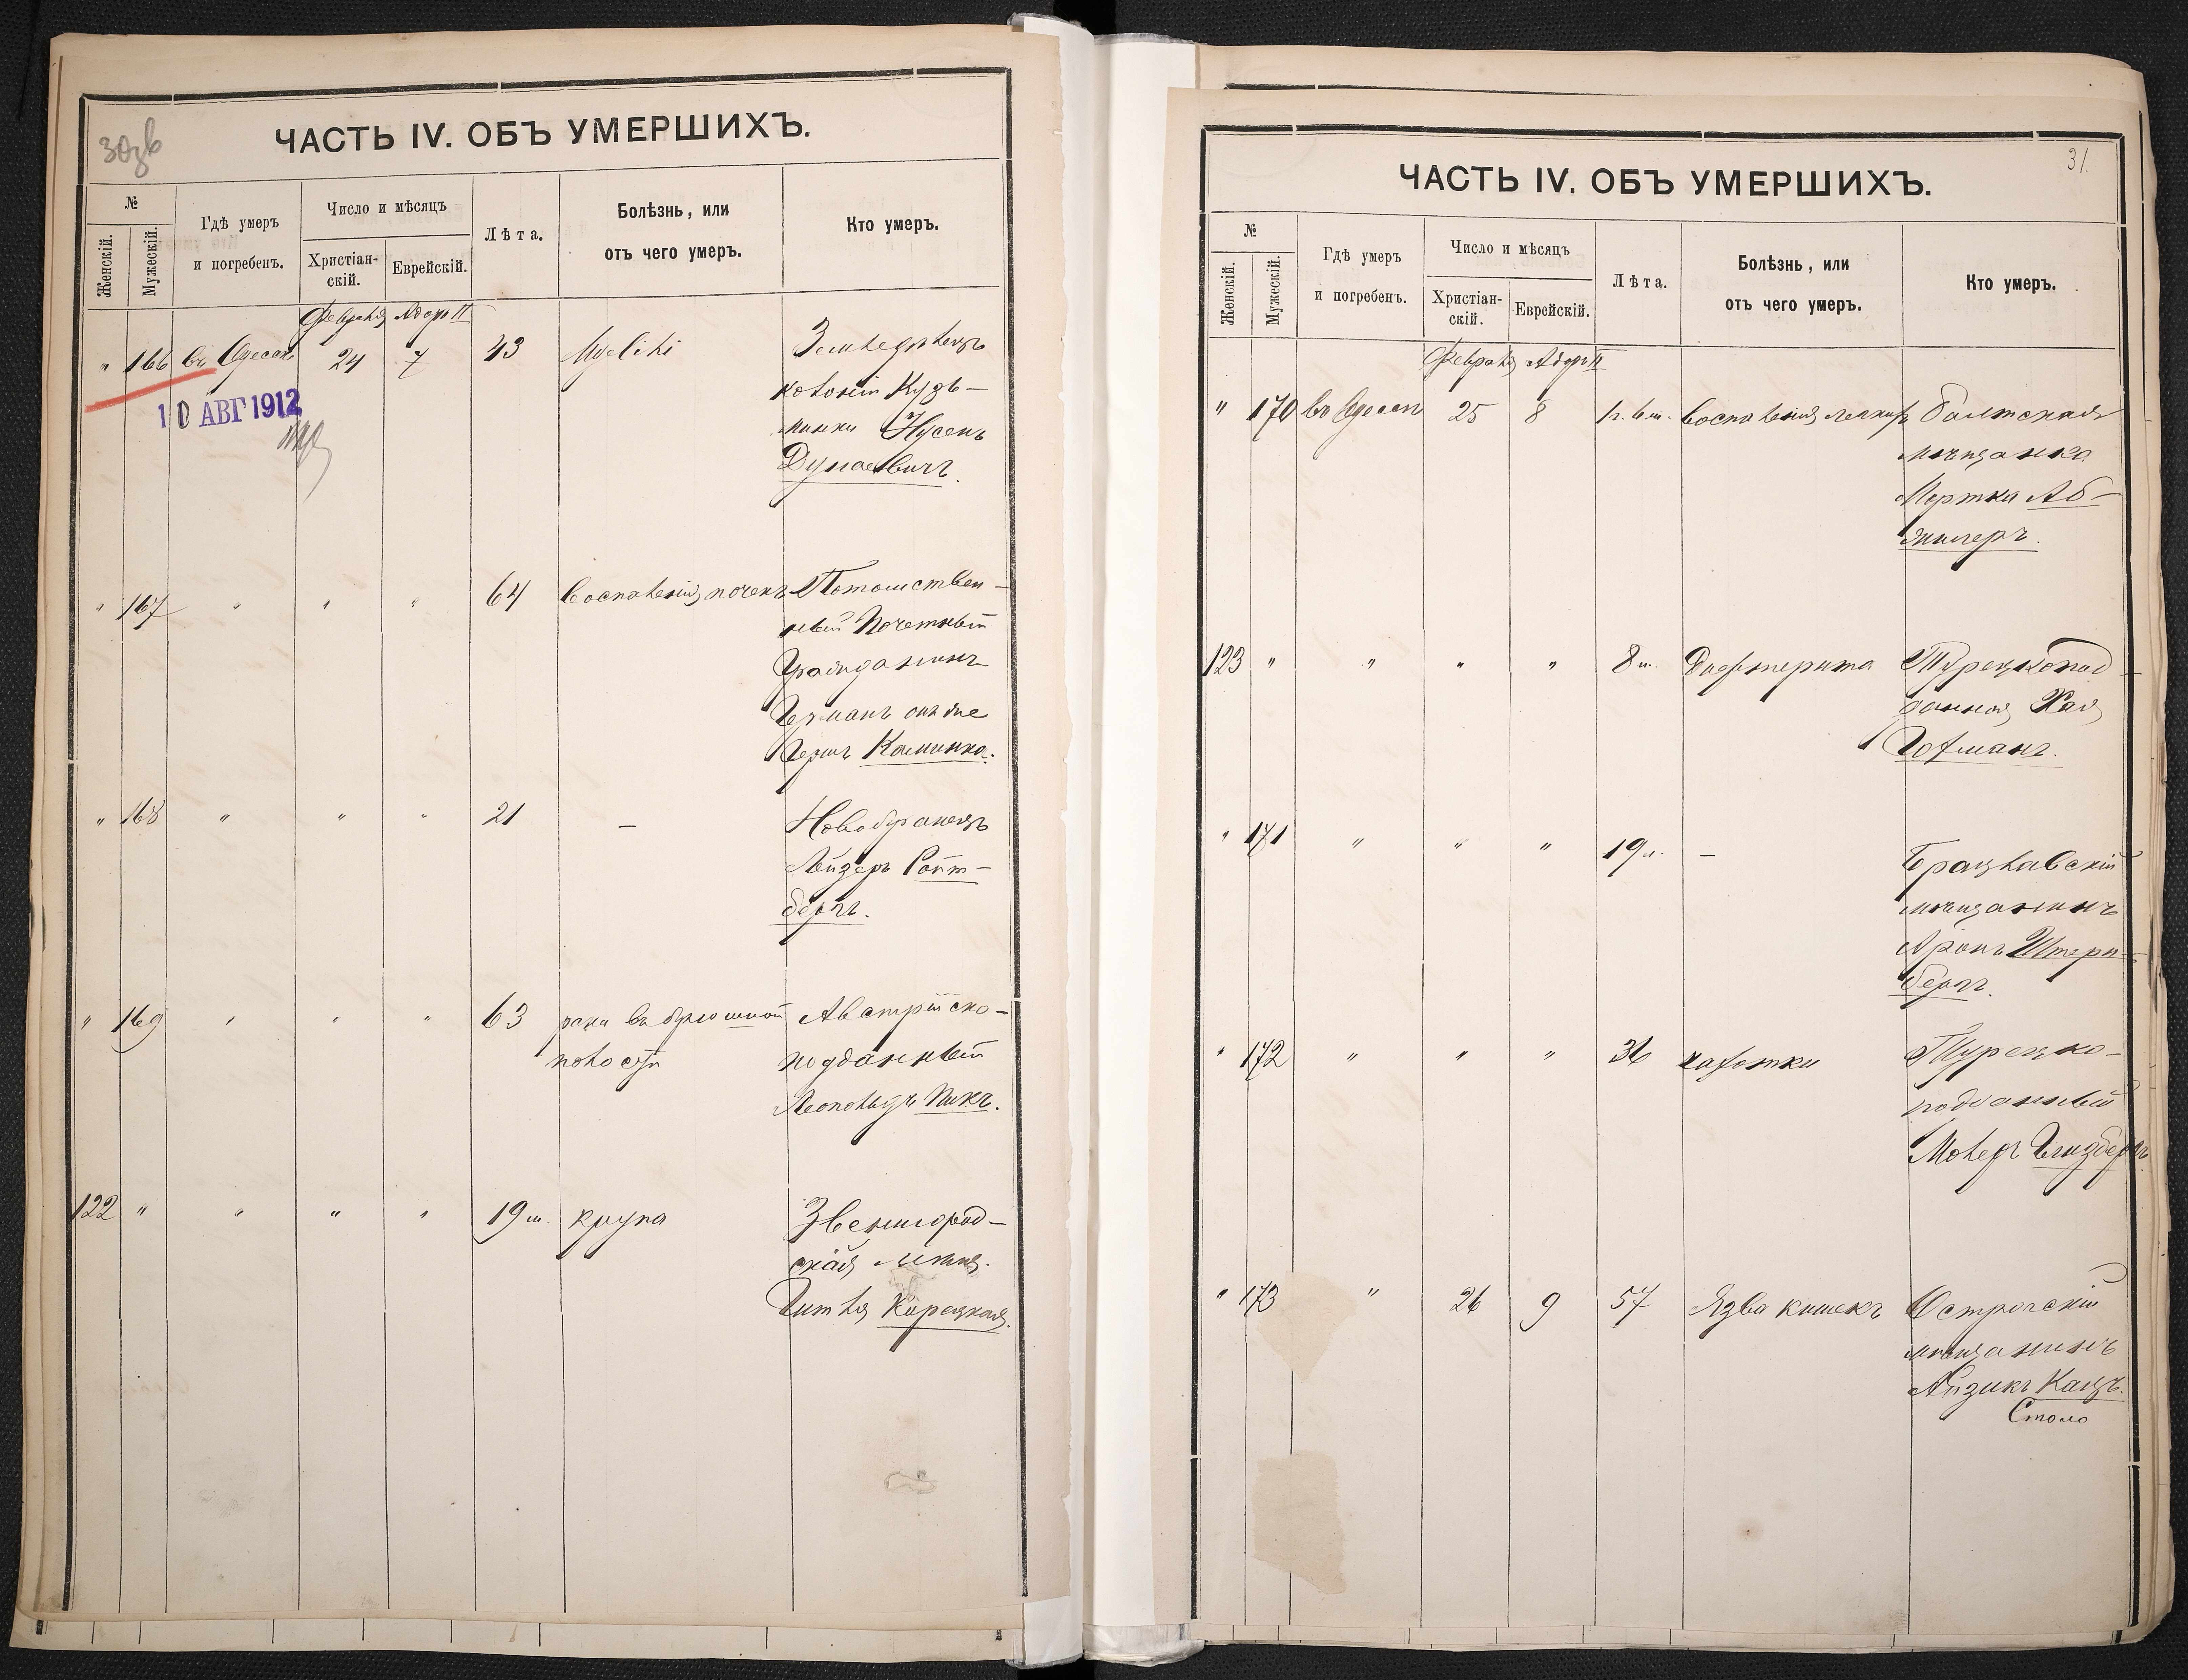 30об
ЧАСТЬ IV. ОБЪ УМЕРШИХЪ.
№
Женскій.
Мужескій.
Гдѣ умеръ
и погребенъ.
Число и мѣсяцъ
Христіан-
скій.
Еврейскій.
Лѣта.
Болѣзнь, или
отъ чего умеръ.
Кто умеръ.
Февраля Адоръ II
" 166 въ Одессѣ 24 7 43 Myeliti Земледѣлецъ
колоніи Кузь-
минки Нусенъ
Дунаевичъ.
10 АВГ 1912
" 167 " " " 64 воспаленія почекъ Потомствен-
ный Почетный
Гражданинъ
Германъ онъ же
Гершъ Каминка.
" 168 " " " 21 — Новобранецъ
Лейзеръ Ройт-
бергъ.
" 169 " " " 63 рака въ брюшной Австрійско-
полости подданный
Леопольдъ Пикъ.
122 " " " " 19 м. крупа Звенигород-
ская мѣщ.
Гитля Корецкая.
31.
ЧАСТЬ IV. ОБЪ УМЕРШИХЪ.
№
Женскій.
Мужескій.
Гдѣ умеръ
и погребенъ.
Число и мѣсяцъ
Христіан-
скій.
Еврейскій.
Лѣта.
Болѣзнь, или
отъ чего умеръ.
Кто умеръ.
Февраля Адоръ II
" 170 въ Одессѣ 25 8 воспаленія легкихъ Балтская
мѣщанка
Мортка Аб-
" 
123 " " " " 8 м. Дифтерита Турецкопод-
данная Хая
Гофманъ.
" 171 " " " 19 л. — Брацлавскій
мѣщанинъ
Аронъ Штерн-
бергъ.
" 172 " " " 36 чахотки Турецко-
подданный
Гинзбергъ
" 173 " 26 9 57 Язва кишекъ Острогскій
мѣщанинъ
Айзикъ Кацъ.
Столо